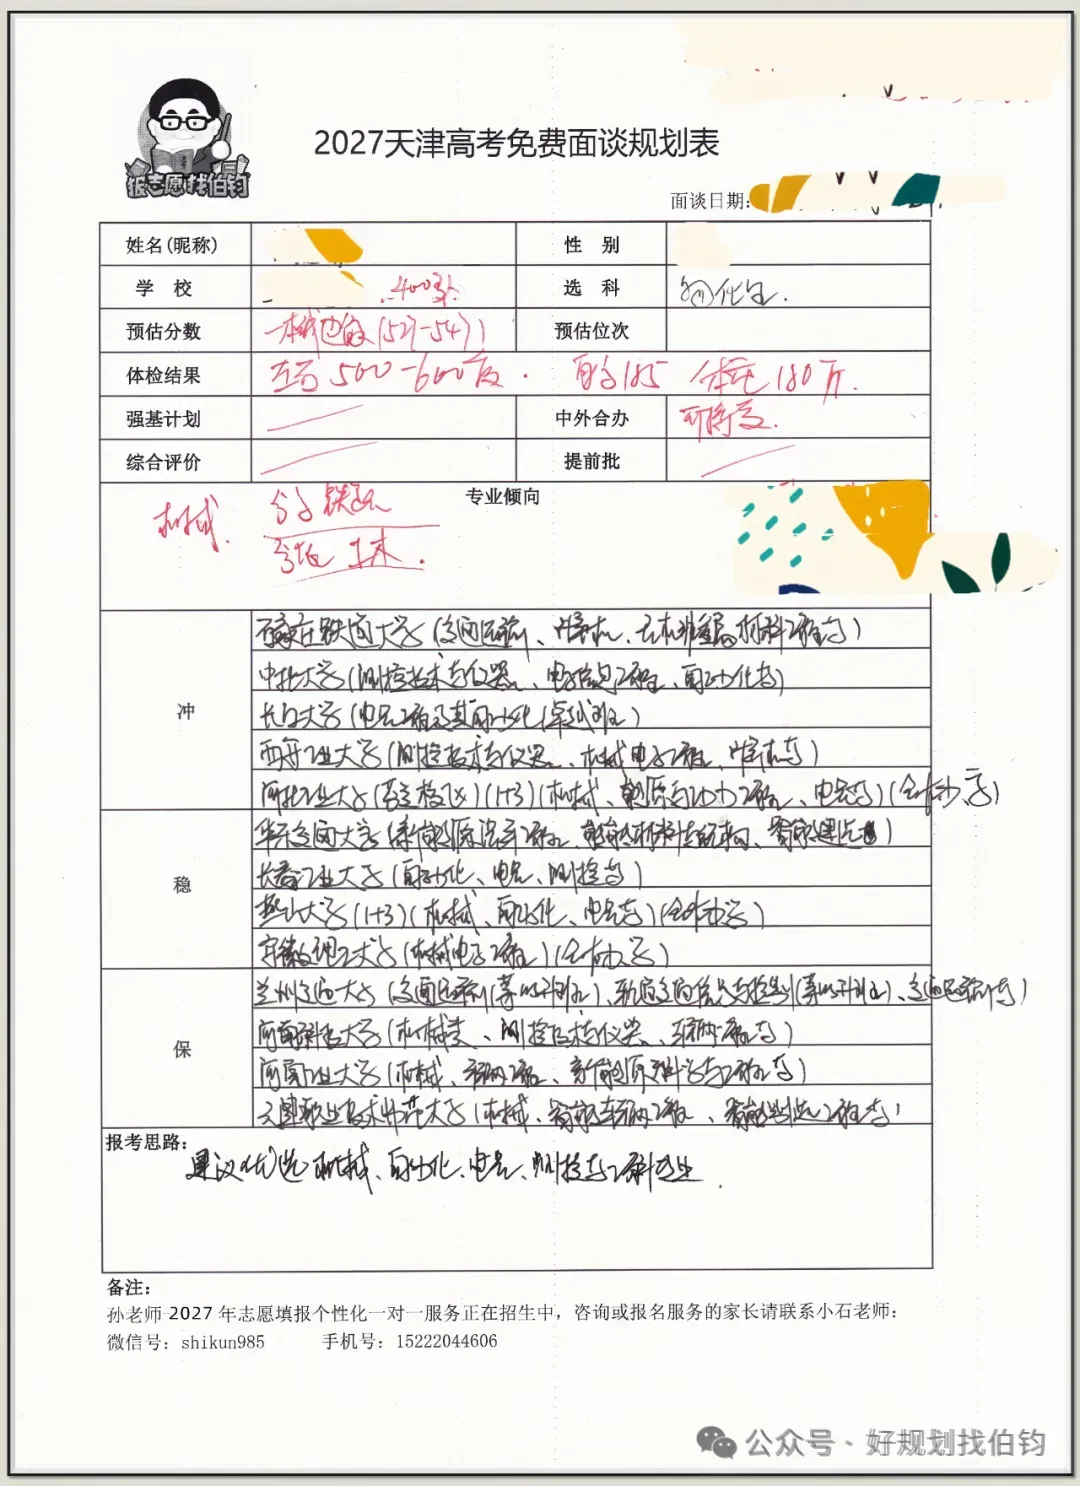 报志愿找伯钧
2027天津高考免费面谈规划表
面谈日期:
姓名(昵称) 性 别
学 校 400多 选 科 物化生.
预估分数 一本线边缘(527-541) 预估位次
体检结果 左右500-600度. 身高185 体重180斤.
强基计划 中外合办 可接受.
综合评价 提前批
专业倾向
机械. 父母 铁路
土木.
冲
石家庄铁道大学(交通运输、计算机、材料工程等)
中北大学(测控技术与仪器、电子信息工程、自动化等)
长白大学(电气工程及其自动化(卓越班)
西安工业大学(测控技术与仪器、机械电子工程、计算机等)
河北工业大学(1+3)(机械、能源与动力工程、电气等)(合作办学)
稳
华东交通大学(新能源汽车工程
长春工业大学(自动化、电气、测控等)
燕山大学(1+3)(机械、自动化、电气等)(合作办学)
安徽理工大学(机械电子工程)(合作办学)
保
兰州交通大学(交通运输(茅以升班)、轨道交通信号与控制(茅以升班)、交通运输等)
河南科技大学(机械类、测控技术与仪器、车辆工程等)
河南工业大学(机械、车辆工程、新能源科学与工程等)
天津职业技术师范大学(机械、智能车辆工程、智能制造工程等)
报考思路:
建议优选机械、自动化、电气、测控等工科专业.
备注:
孙老师 2027 年志愿填报个性化一对一服务正在招生中，咨询或报名服务的家长请联系小石老师:
微信号: shikun985 手机号: 15222044606
公众号 · 好规划找伯钧